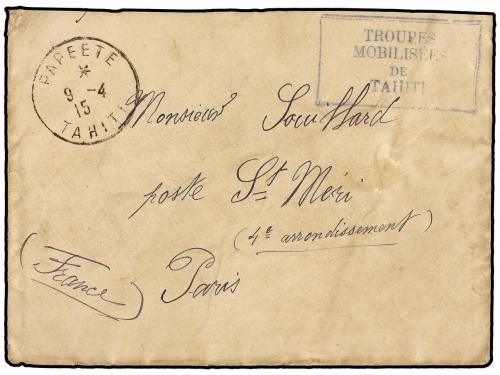 PAPEETE
*
9 -4
15
TAHITI
TROUPES
MOBILISÉES
DE
TAHITI
Monsieur Souffard
poste St Méri
(4e arrondissement)
(France) Paris